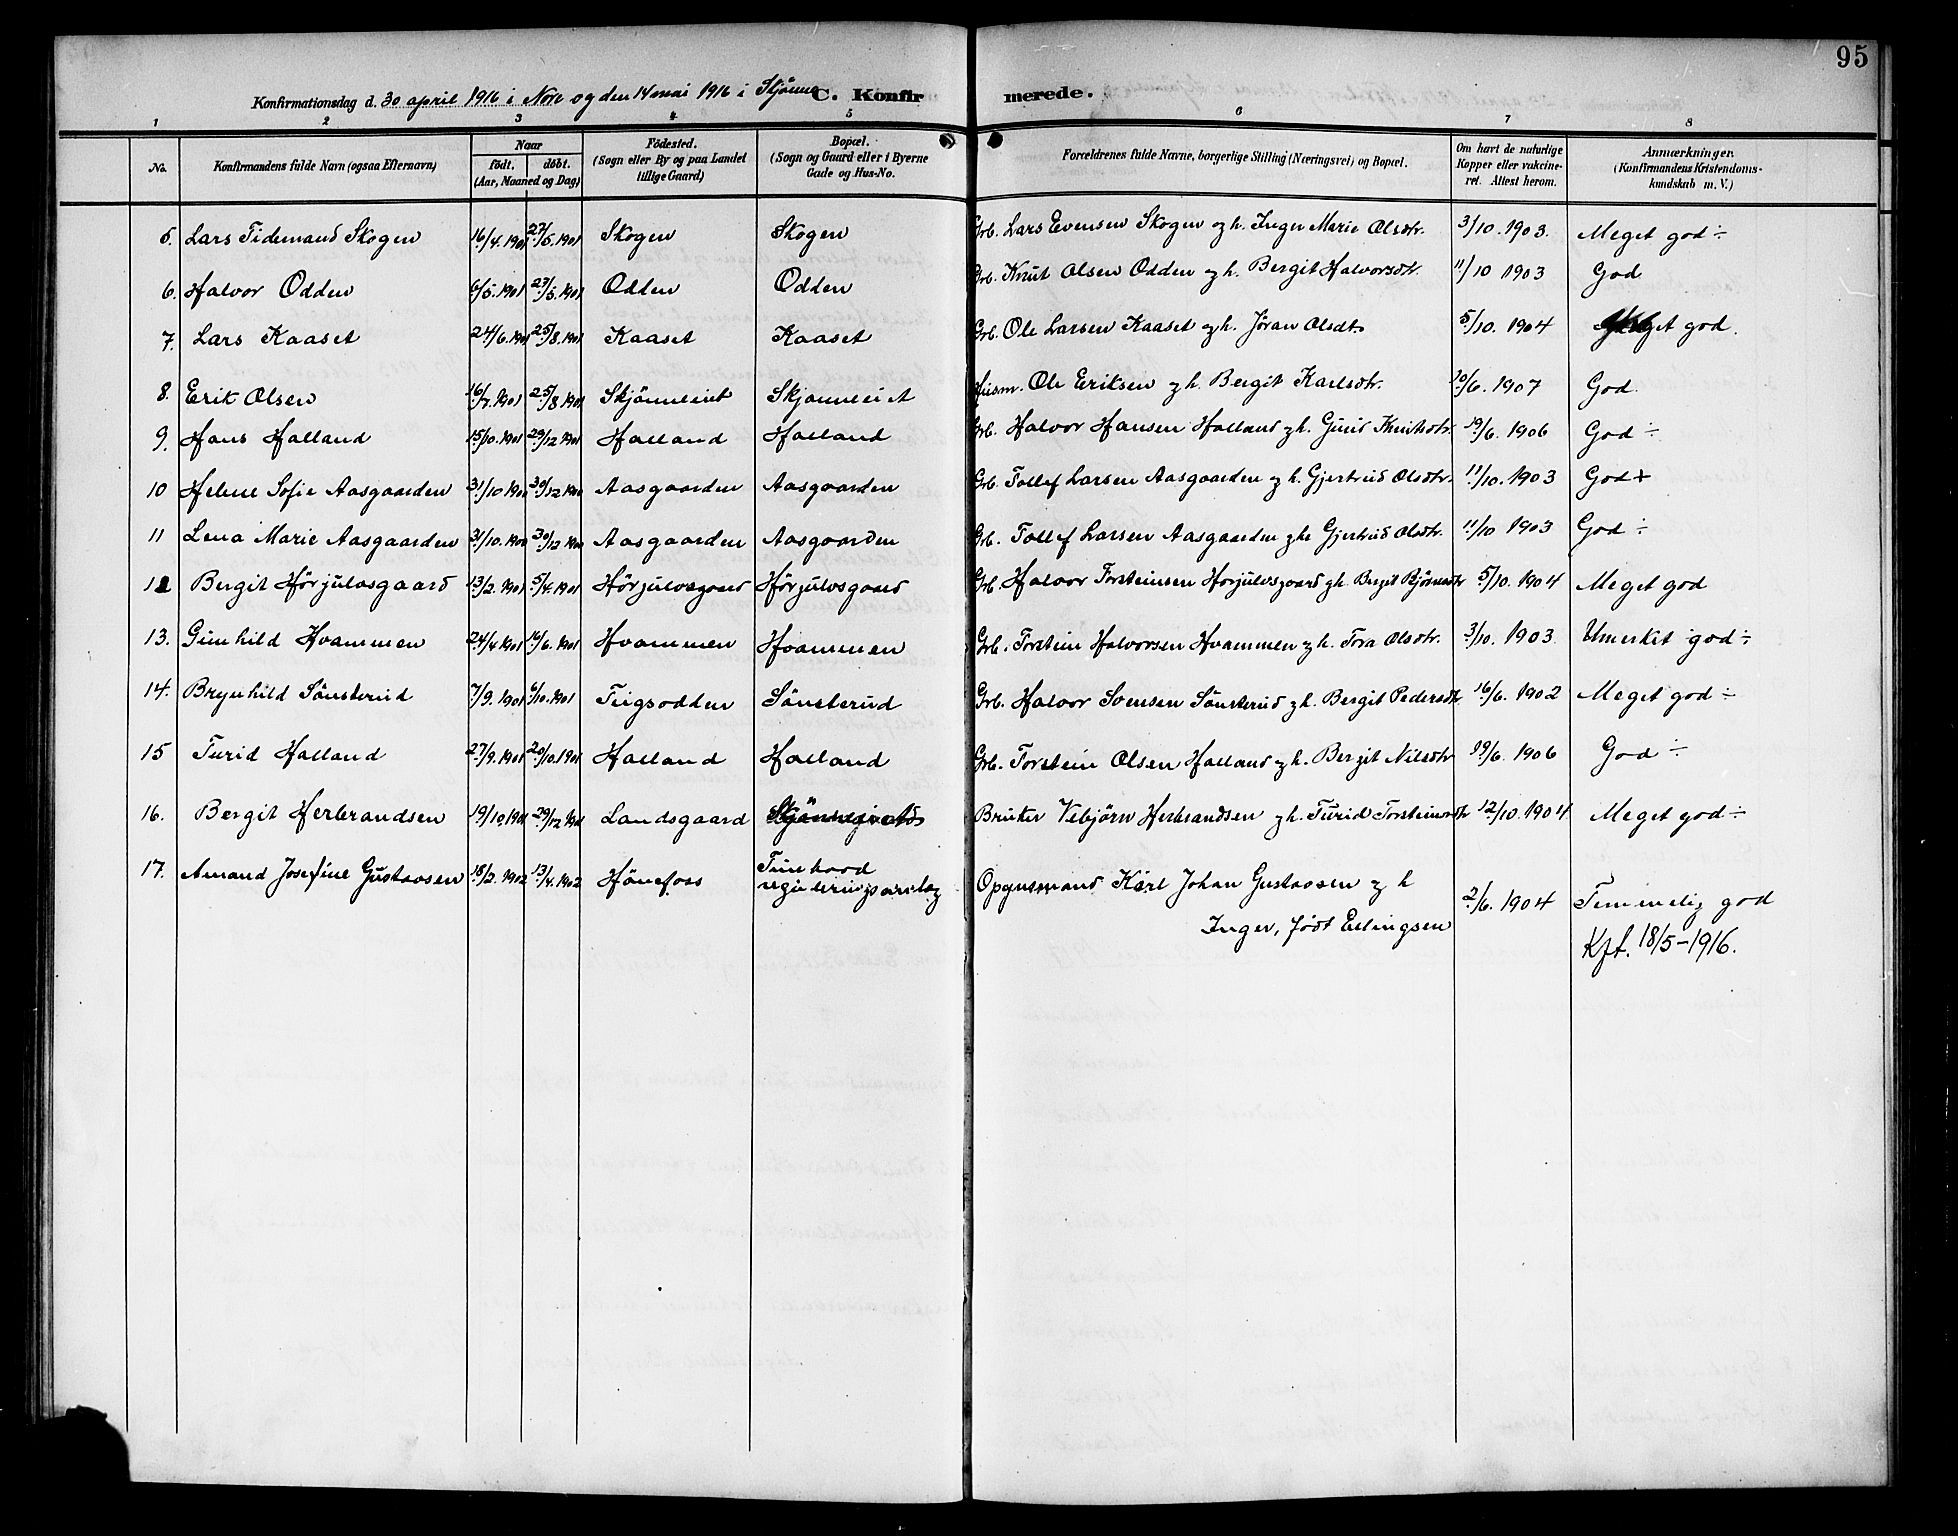 95
Konfirmationsdag d. 30 april 1916 i Nore og den 14 mai 1916 i Skjønne C. Konfirmerede.
1 2 3 4 5 6 7 8
No. | Konfirmandens fulde Navn (ogsaa Efternavn) | Naar født. døbt. (Aar, Maaned og Dag) | Fødested. (Sogn eller By og paa Landet tillige Gaard) | Bopæl. (Sogn og Gaard eller i Byerne Gade og Hus-No. | Forældrenes fulde Navne, borgerlige Stilling (Næringsvei) og Bopæl. | Om havt de naturlige Kopper eller vakcineret. Attest herom. | Anmærkninger. (Konfirmandens Kristendomskundskab m. V.)
5. Lars Tidemand Skogen 16/4.1901 27/5.1901 Skogen Skogen Grb. Lars Evensen Skogen og h. Inger Marie Olsdtr. 3/10.1903. Meget god ÷
6. Halvor Odden 6/5.1901 23/5.1901 Odden Odden Grb. Knut Olsen Odden og h. Bergit Halvorsdtr. 11/10 1903 God
7. Lars Kaaset 24/6.1901 25/8.1901 Kaaset Kaaset Grb. Ole Larsen Kaaset og h. Jøran Olsdtr 5/10.1904 Meget god.
8. Erik Olsen 16/7.1901 25/8 1901 Skjønneiet Skjønneiet Husm. Ole Eriksen og h. Bergit Karlsdtr. 20/6.1907 God.
9. Hans Halland 15/10.1901 29/12 1901 Halland Halland Grb. Halvor Hansen Halland og h. Guid Knutsdtr. 19/6.1906 God ÷
10 Helene Sofie Aasgaarden 31/10 1900 30/12 1900 Aasgaarden Aasgaarden Grb. Tollef Larsen Aasgaarden og h. Gjertrud Olsdtr. 11/10.1903 God +
11 Lena Marie Aasgaarden 31/10.1900 30/12 1900 Aasgaarden Aasgaarden Grb. Tollef Larsen Aasgaarden og h. Gjertrud Olsdtr. 11/10 1903 God ÷
12 Bergit Hørjulvsgaard 13/2.1901 5/4.1901 Hørjulvsgaard Hørjulvsgaard Grb. Halvor Torsteinsen Hørjulvsgaard og h. Bergit Bjørnsdtr 5/10.1904 Meget god
13. Gunhild Hvammen 24/4 1901 16/6.1901 Hvammen Hvammen Grb. Torstein Halvorsen Hvammen og h. Tora Olsdtr. 3/10.1903. Utmerket god ÷
14. Brynhild Sønsterud 7/9.1901 6/10.1901 Teigsodden Sønsterud Grb. Halvor Svensen Sønsterud og h. Bergit Pedersdtr 16/6.1902 Meget god ÷
15 Turid Halland 27/9.1901 20/10.1901 Halland Halland Grb. Torstein Olsen Halland og h. Bergit Nilsdtr 19/6.1906 God ÷
16. Bergit Herbrandsen 19/10.1901 29/12 1901 Landsgaard Bruker Vebjørn Herbrandsen og h. Turid Torsteinsdtr 12/10.1904 Meget god ÷
17. Amand Josefine Gustavsen 18/2.1902 13/4.1902 Hønefoss Tunhovd reguleringsanlæg Opsynsmand Karl Johan Gustavsen og h 2/6.1904 Temmelig god
Inger, født Erlingsen
Kft. 18/5-1916.